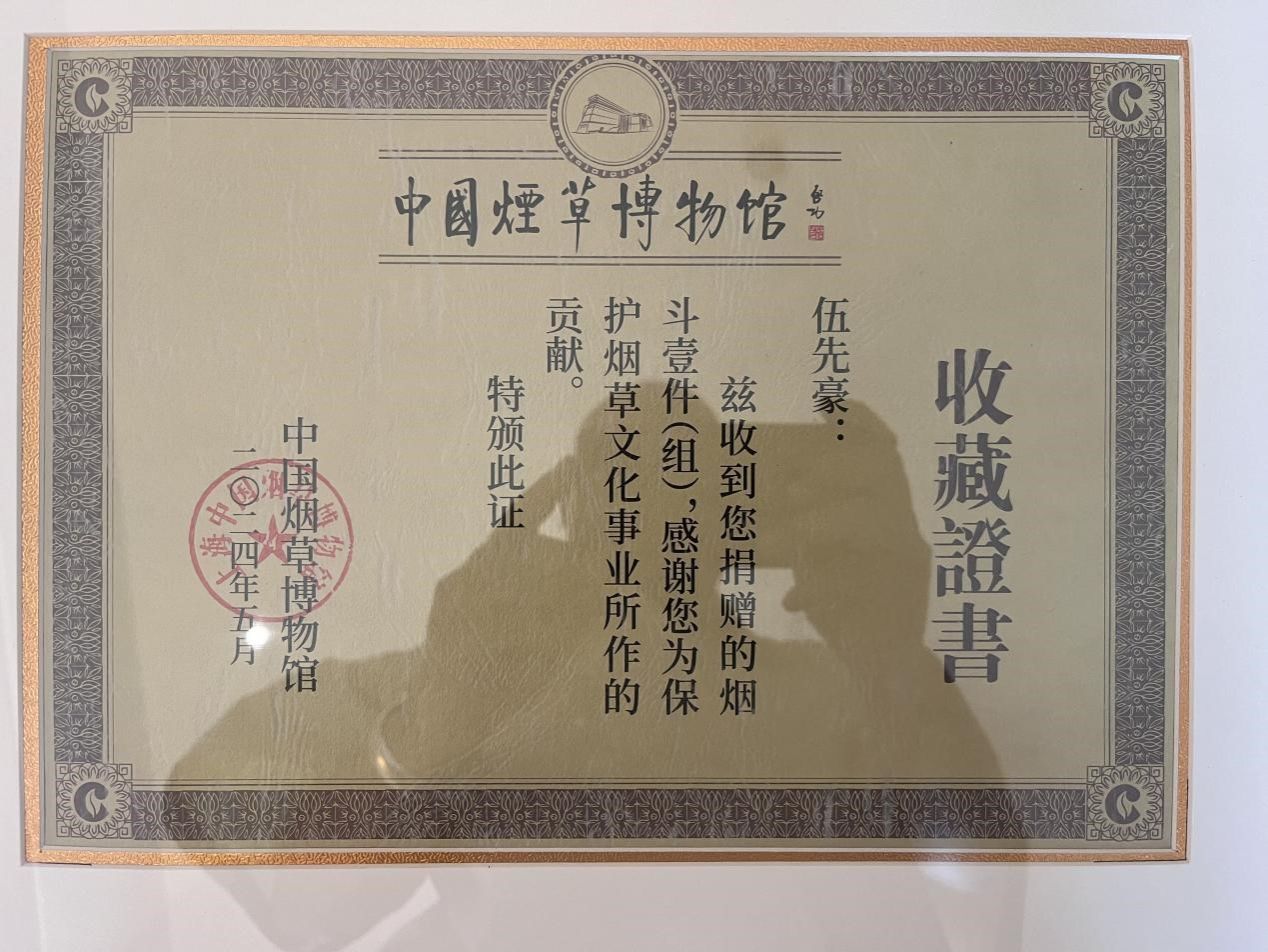 中國煙草博物馆
启功
收藏證書
伍先豪：
兹收到您捐赠的烟
斗壹件(组)，感谢您为保
护烟草文化事业所作的
贡献。
特颁此证
中国烟草博物馆
二〇二四年五月
上海中国烟草博物馆